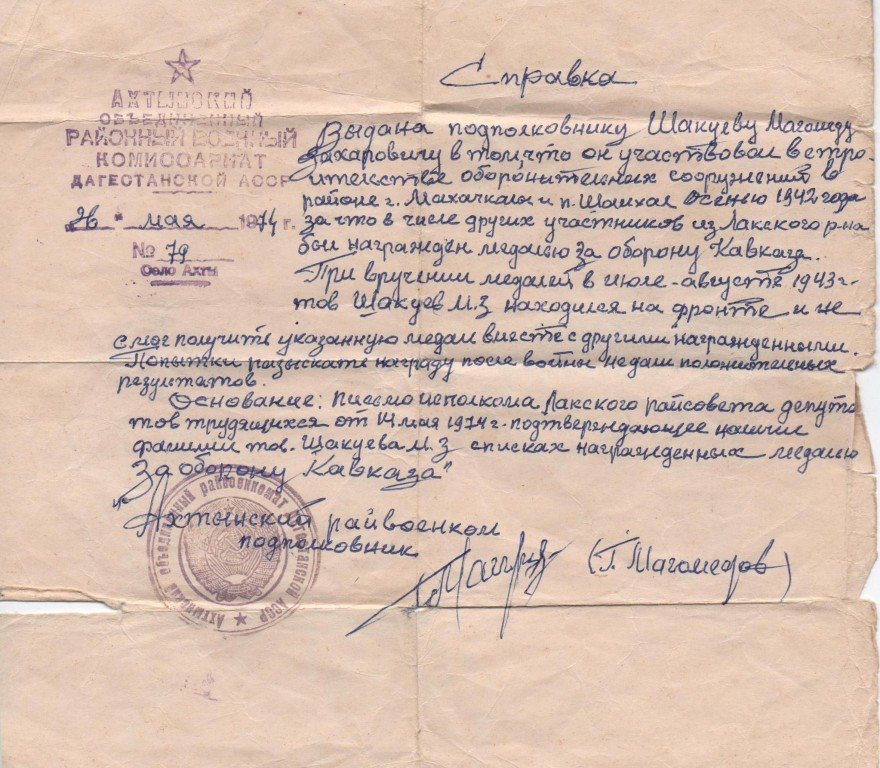 Справка
АХТЫНСКИЙ
ОБЪЕДИНЕННЫЙ
РАЙОННЫЙ ВОЕННЫЙ
КОМИССАРИАТ
ДАГЕСТАНСКОЙ АССР
„26“ мая 1974 г.
№ 79
Село Ахты
Выдана подполковнику Шакуеву Магомеду
Захаровичу в том, что он участвовал в стро-
ительстве оборонительных сооружений в
районе г. Махачкала и п. Шамхал осенью 1942 года
за что в числе других участников из Лакского р-на
был награжден медалью За оборону Кавказа.
При вручении медалей в июле-августе 1943 г.
тов Шакуев М.З находился на фронте и не
смог получить указанную медаль вместе с другими награжденными.
Попытки разыскать награду после войны не дали положительных
результатов.
Основание: письмо исполкома Лакского райсовета депута
тов трудящихся от 14 мая 1974 г. подтверждающее наличие
фамилии тов. Шакуева М.З списках награжденных медалью
За оборону Кавказа"
Ахтынский райвоенком
подполковник
(Г. Магомедов)
Ахтынский объединенный райвоенкомат Дагестанской АССР